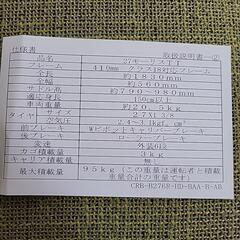 仕様書 取扱説明書一②
品名 27モーリスLT
フレーム 410mm クラス18対応フレーム
全長 約1830mm
全幅 約560mm
サドル高 約790~980mm
適応身長 150cm以上
車両重量 約20.5kg
タイヤ サイズ 27X1 3/8
空気圧 2.4~3.1kgf/cm²
前ブレーキ Wピボットキャリパーブレーキ
後ブレーキ
変速 外装6段
カゴ積載量 3kg
キャリア積載量
最大積載量 95kg(この重量は運転者と積載
重量合計の重量です)
CRB-B276R-HD-BAA-B-AB